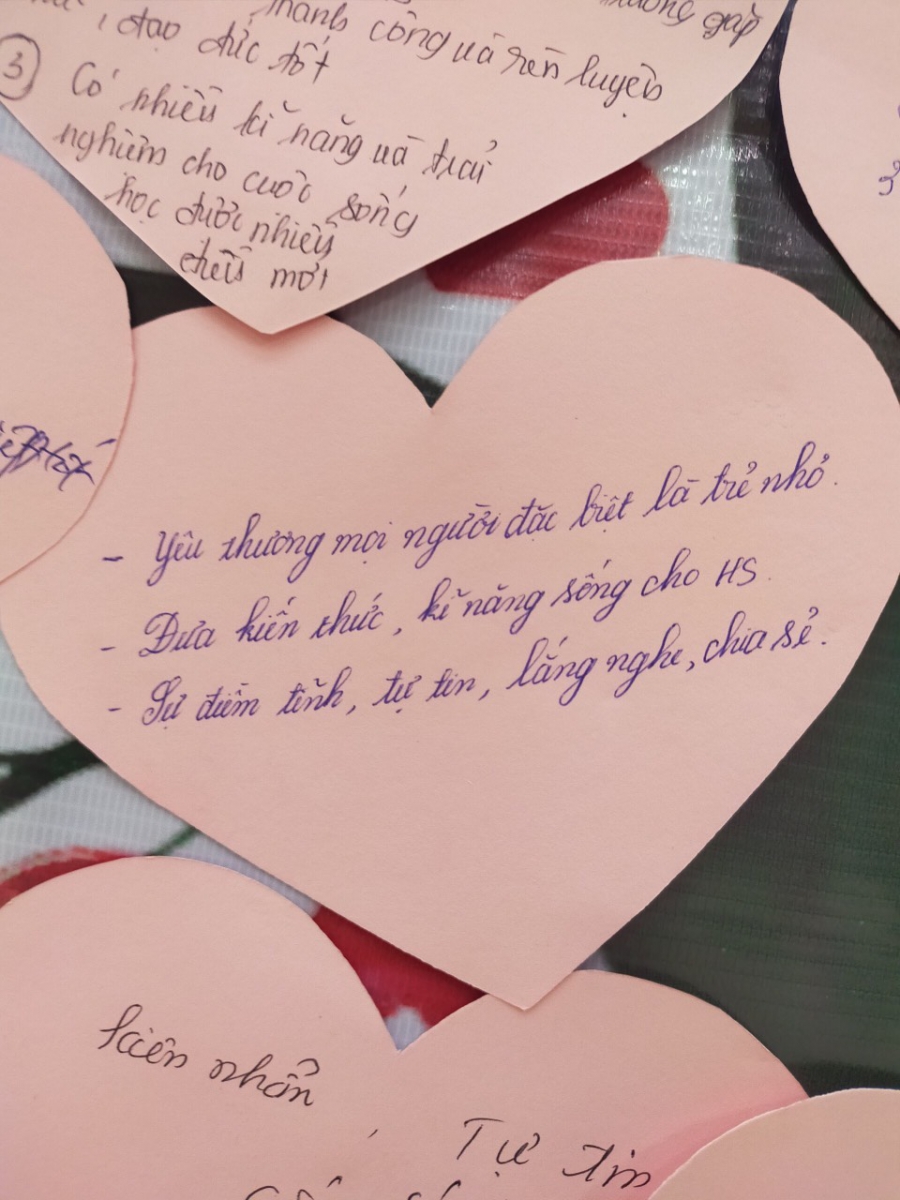 thành công và rèn luyện
đạo đức tốt
③ Có nhiều kĩ năng và trải
nghiệm cho cuộc sống
học được nhiều
điều mới
- Yêu thương mọi người đặc biệt là trẻ nhỏ.
- Đưa kiến thức, kĩ năng sống cho HS.
- Sự điềm tĩnh, tự tin, lắng nghe, chia sẻ.
kiên nhẫn
Tự tin